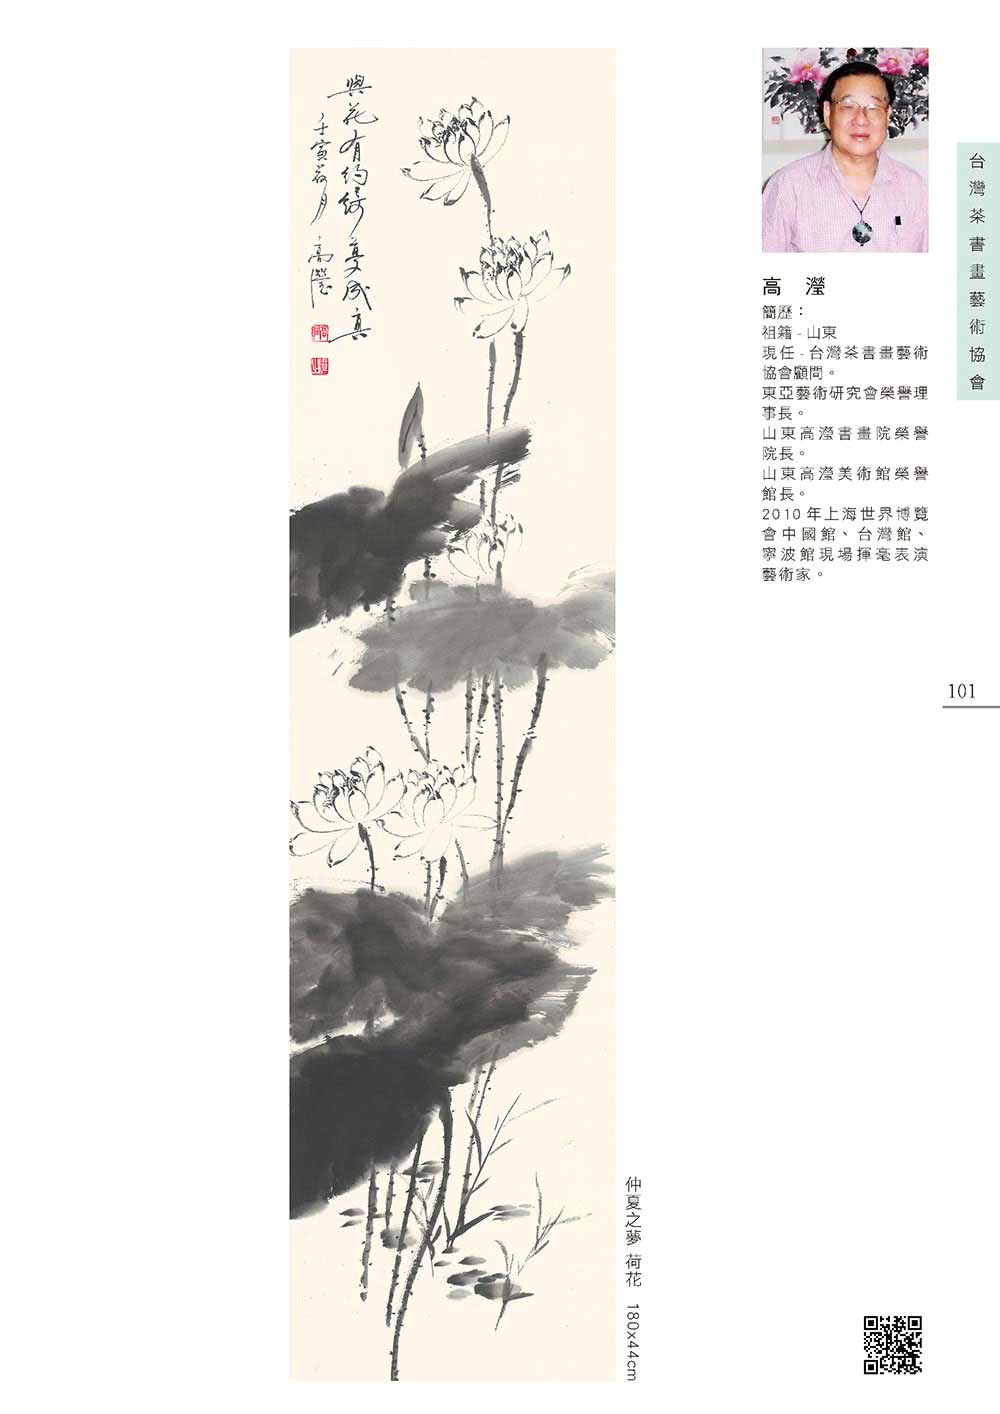 與花有約綺夢成真
壬寅荷月 高瀅
高 瀅
簡歷：
祖籍 - 山東
現任 - 台灣茶書畫藝術
協會顧問。
東亞藝術研究會榮譽理
事長。
山東高瀅書畫院榮譽
院長。
山東高瀅美術館榮譽
館長。
2010 年上海世界博覽
會中國館、台灣館、
寧波館現場揮毫表演
藝術家。
台灣茶書畫藝術協會
101
仲夏之夢 荷花 180x44cm